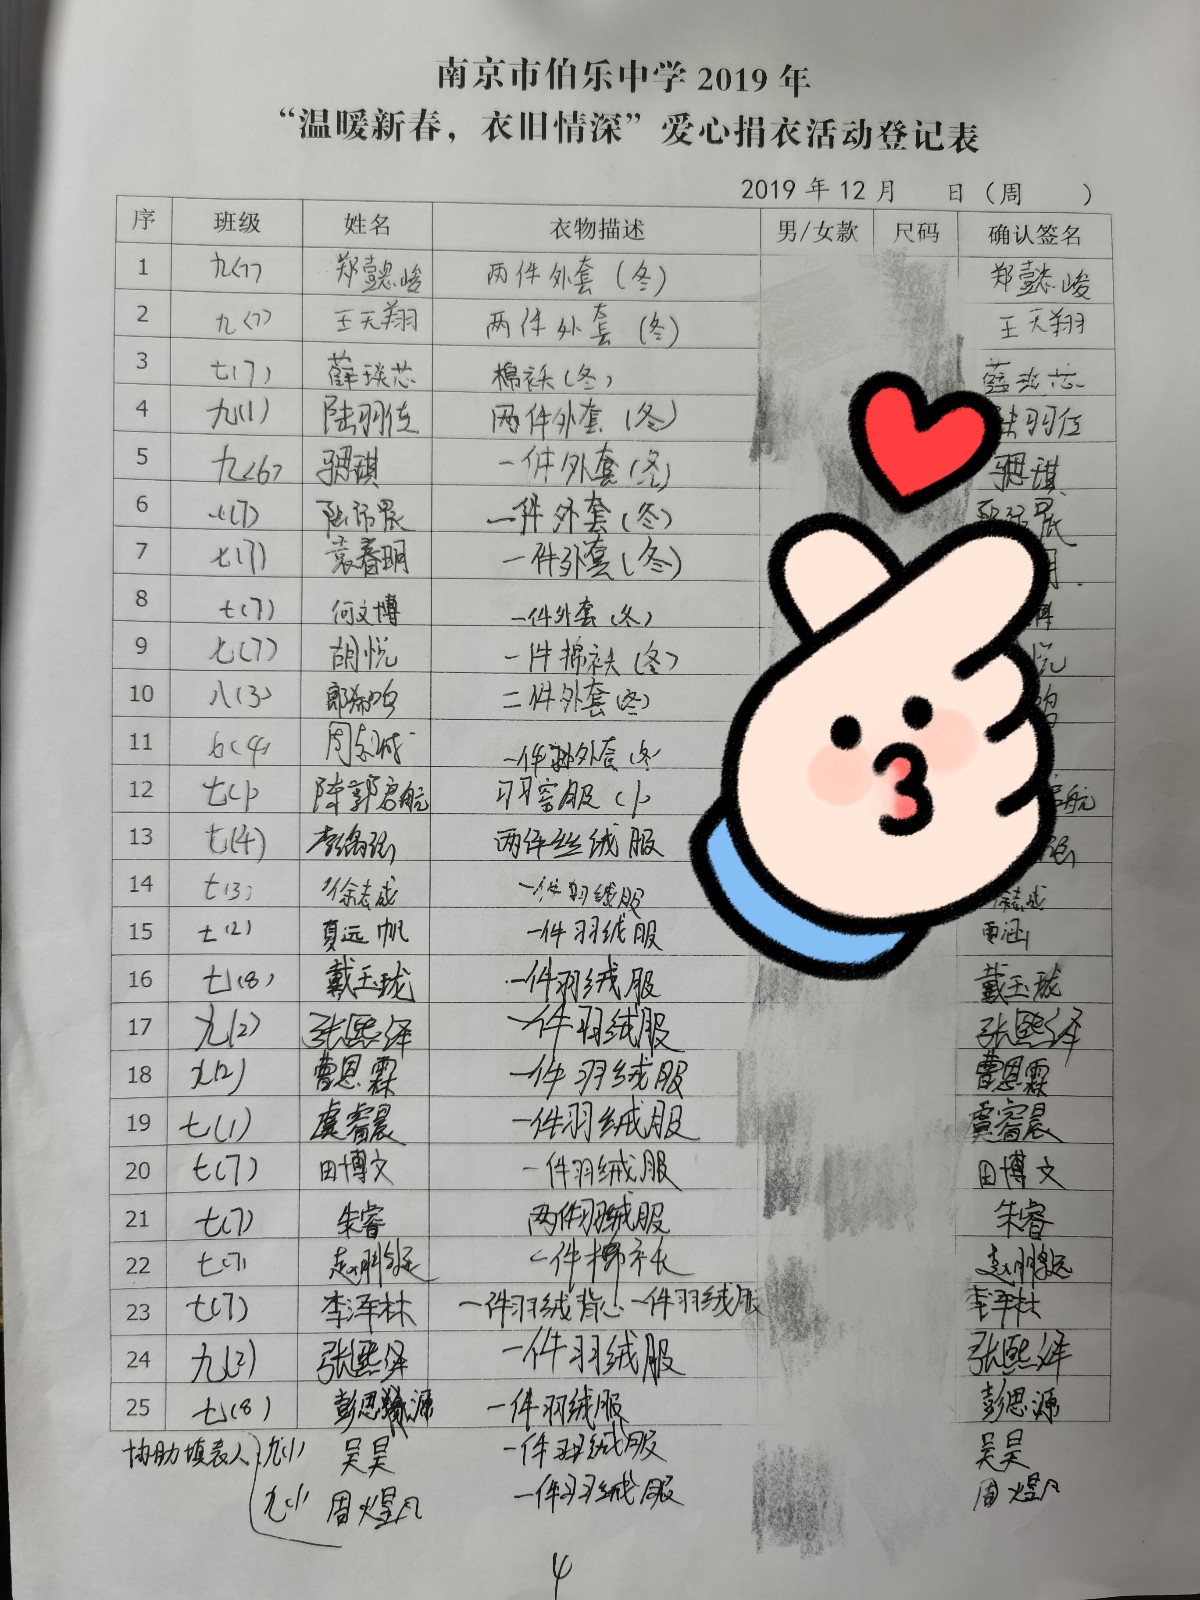 南京市伯乐中学2019年
“温暖新春，衣旧情深”爱心捐衣活动登记表
2019年12月 日（周 ）
序 班级 姓名 衣物描述 男/女款 尺码 确认签名
1 九(7) 郑懿峻 两件外套（冬） 郑懿峻
2 九(7) 王天翔 两件外套（冬） 王天翔
3 七(7) 薛琰芯 棉袄（冬）
4 九(1) 两件外套（冬）
5 九(6) 琪 一件外套（冬） 琪
6 七(7) 一件外套（冬）
7 七(7) 袁春明 一件外套（冬）
8 七(7) 何文博 一件外套（冬）
9 七(7) 胡悦 一件棉袄（冬） 悦
10 八(3) 二件外套（冬）
11 周 一件外套（冬
12 七(1) 陈郭启航 航
13 七(4) 两件丝绒服
14 七(3) 徐志成 一件羽绒服 徐志成
15 七(2) 夏远帆 一件羽绒服
16 七(8) 戴玉珑 一件羽绒服 戴玉珑
17 九(2) 张熙泽 一件羽绒服 张熙泽
18 九(2) 曹恩霖 一件羽绒服 曹恩霖
19 七(1) 虞睿晨 一件羽绒服 虞睿晨
20 七(7) 田博文 一件羽绒服 田博文
21 七(7) 朱睿 两件羽绒服 朱睿
22 七(7) 一件棉衣
23 七(7) 李泽林 一件羽绒背心 一件羽绒服 李泽林
24 九(2) 张熙泽 一件羽绒服 张熙泽
25 七(8) 彭思源 一件羽绒服 彭思源
协助填表人 九(1) 吴昊 一件羽绒服 吴昊
九(1) 周煜凡 一件羽绒服 周煜凡
4